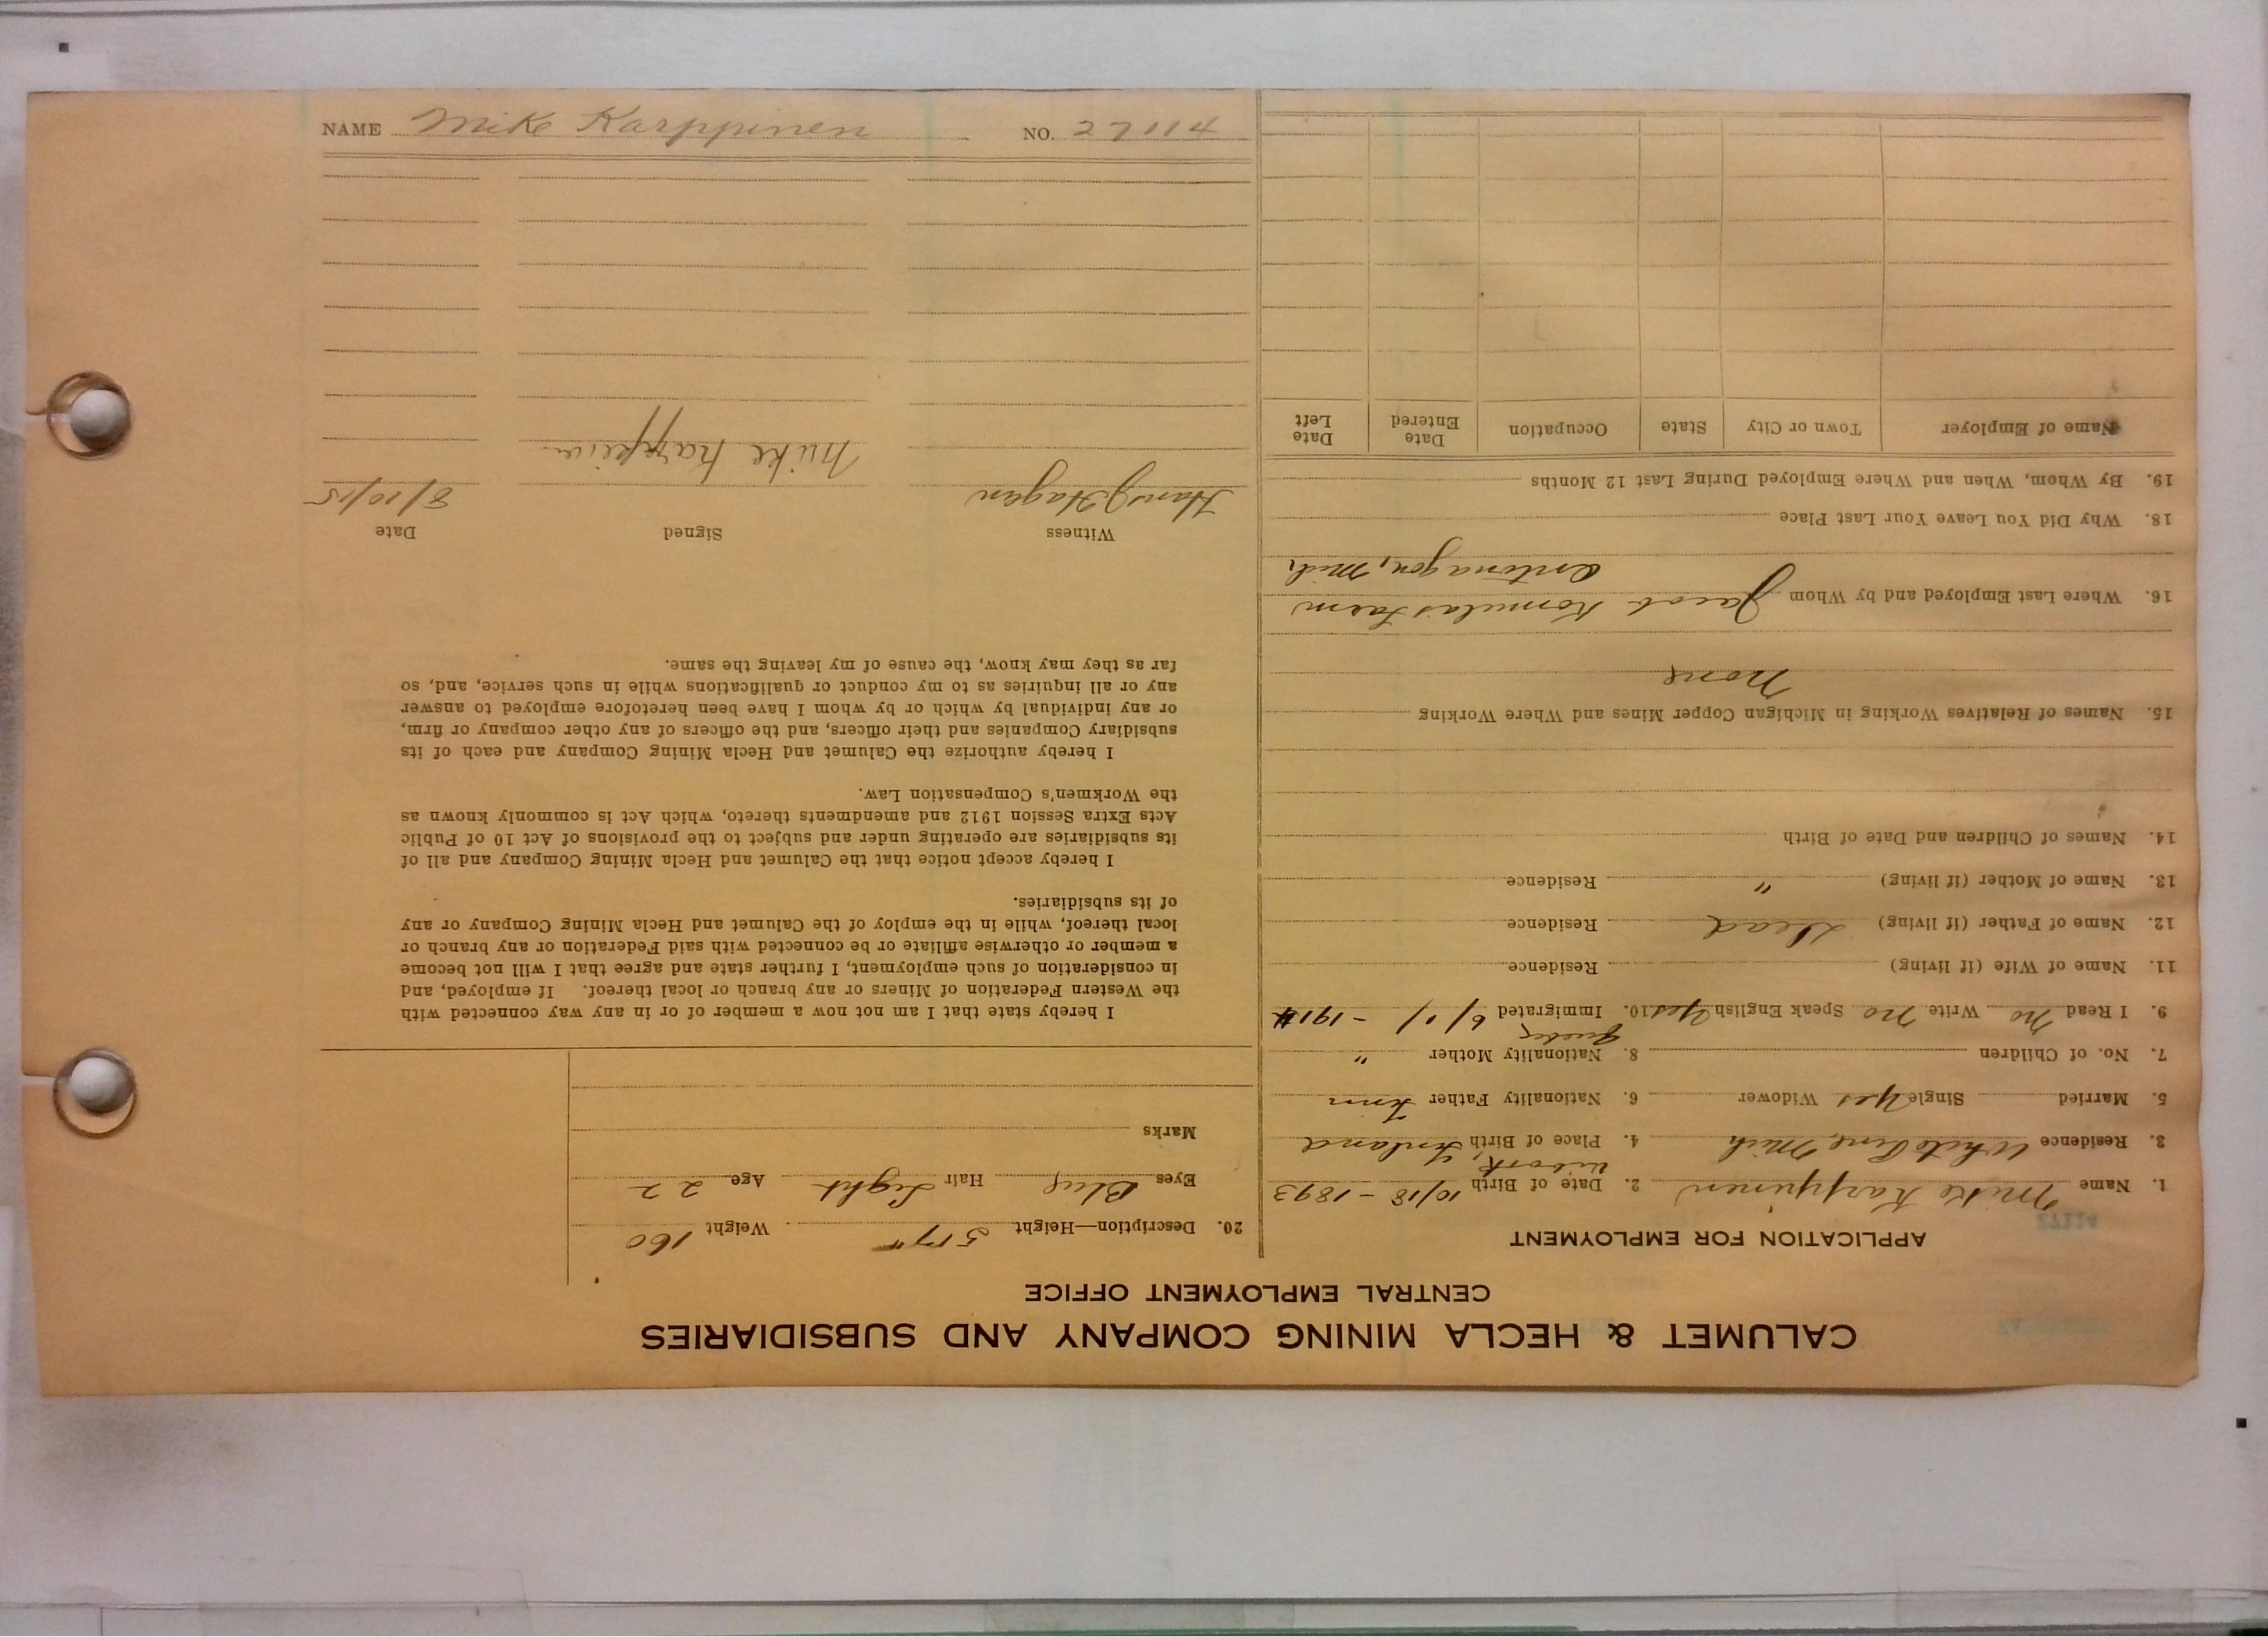 CALUMET & HECLA MINING COMPANY AND SUBSIDIARIES
CENTRAL EMPLOYMENT OFFICE
APPLICATION FOR EMPLOYMENT
27114
1. Name Mike Karppinen 2. Date of Birth 10/18 - 1893
3. Residence White Pine, Mich 4. Place of Birth Finland
5. Married Single Yes Widower 6. Nationality Father Finn
7. No. of Children 8. Nationality Mother "
9. I Read No Write No Speak English Yes 10. Immigrated 6/1/ - 1914
Quebec
11. Name of Wife (if living) Residence
12. Name of Father (if living) Dead Residence
13. Name of Mother (if living) " Residence
14. Names of Children and Date of Birth
15. Names of Relatives Working in Michigan Copper Mines and Where Working
None
16. Where Last Employed and by Whom Jacob Farm
Ontonagon, Mich
18. Why Did You Leave Your Last Place
19. By Whom, When and Where Employed During Last 12 Months
Name of Employer Town or City State Occupation Date Entered Date Left
20. Description—Height 5' 7" Weight 160
Eyes Blue Hair Light Age 22
Marks
I hereby state that I am not now a member of or in any way connected with
the Western Federation of Miners or any branch or local thereof. If employed, and
in consideration of such employment, I further state and agree that I will not become
a member or otherwise affiliate or be connected with said Federation or any branch or
local thereof, while in the employ of the Calumet and Hecla Mining Company or any
of its subsidiaries.
I hereby accept notice that the Calumet and Hecla Mining Company and all of
its subsidiaries are operating under and subject to the provisions of Act 10 of Public
Acts Extra Session 1912 and amendments thereto, which Act is commonly known as
the Workmen's Compensation Law.
I hereby authorize the Calumet and Hecla Mining Company and each of its
subsidiary Companies and their officers, and the officers of any other company or firm,
or any individual by which or by whom I have been heretofore employed to answer
any or all inquiries as to my conduct or qualifications while in such service, and, so
far as they may know, the cause of my leaving the same.
Witness Signed Date
Hagan Mike 8/10/15
NAME Mike Karppinen NO. 27114